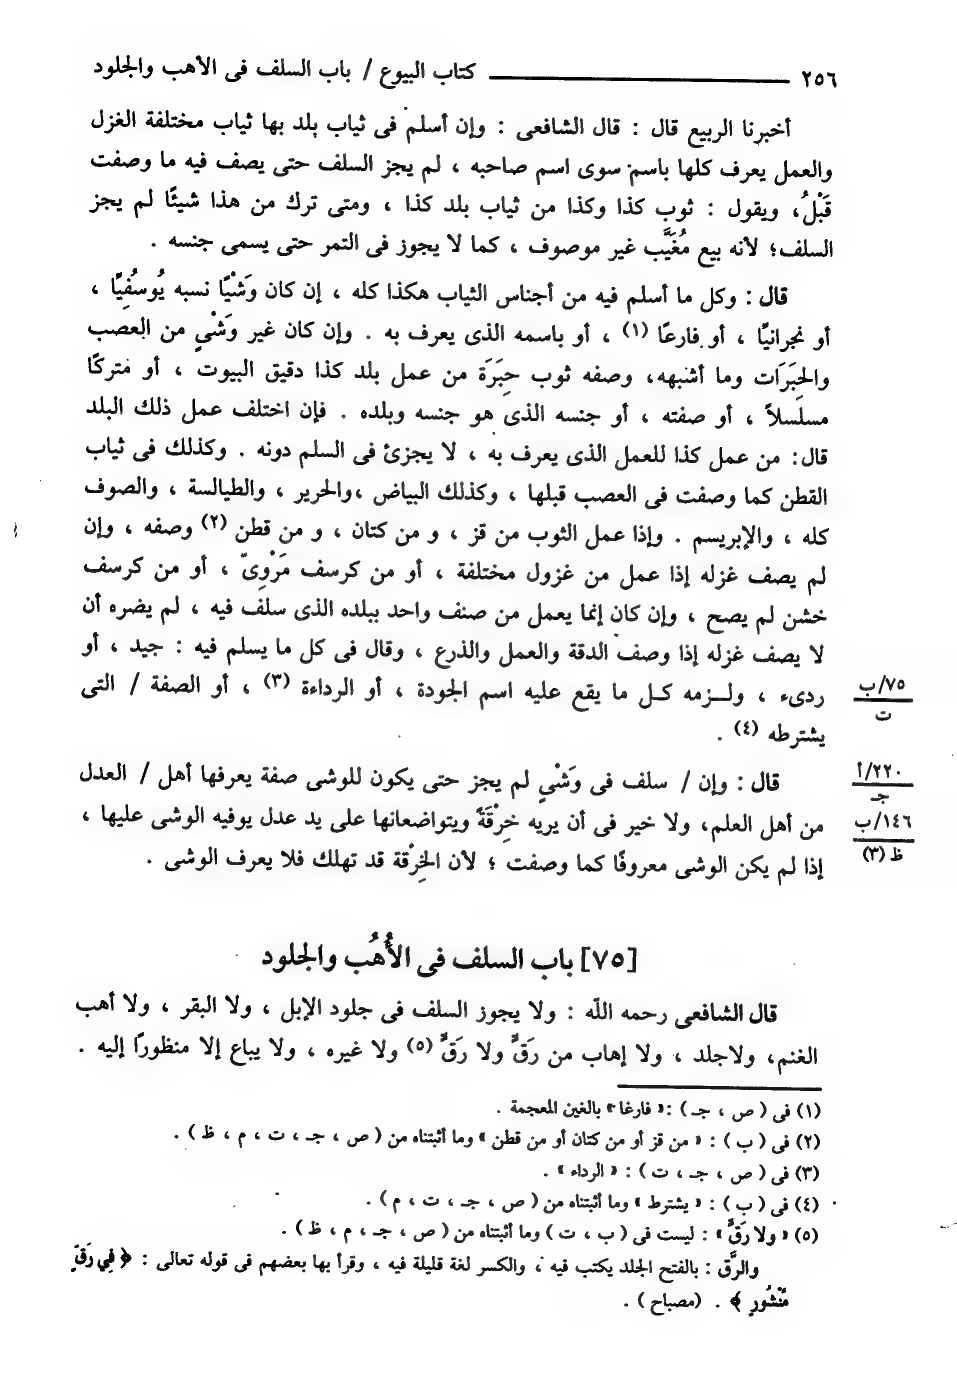 ٢٥٦ ــــــــــــــــــــ كتاب البيوع / باب السلف فى الأهب والجلود
أخبرنا الربيع قال : قال الشافعى : وإن أسلم فى ثياب بلد بها ثياب مختلفة الغزل
والعمل يعرف كلها باسم سوى اسم صاحبه ، لم يجز السلف حتى يصف فيه ما وصفت
قَبْلُ، ويقول : ثوب كذا وكذا من ثياب بلد كذا ، ومتى ترك من هذا شيئًا لم يجز
السلف؛ لأنه بيع مُغَيَّب غير موصوف ، كما لا يجوز فى التمر حتى يسمى جنسه .
قال : وكل ما أسلم فيه من أجناس الثياب هكذا كله ، إن كان وَشْيًا نسبه يُوسُفِيًا ،
أو نجرانيًا ، أو فارعًا (١) ، أو باسمه الذى يعرف به . وإن كان غير وَشْيٍ من العصب
والحِبَرَات وما أشبهه، وصفه ثوب حِبَرَة من عمل بلد كذا دقيق البيوت ، أو متركًا
مسلسلاً ، أو صفته ، أو جنسه الذى هو جنسه وبلده . فإن اختلف عمل ذلك البلد
قال: من عمل كذا للعمل الذى يعرف به ، لا يجزئ فى السلم دونه . وكذلك فى ثياب
القطن كما وصفت فى العصب قبلها ، وكذلك البياض ،والحرير ، والطيالسة ، والصوف
كله ، والإبريسم . وإذا عمل الثوب من قز ، و من كتان ، و من قطن (٢) وصفه ، وإن
لم يصف غزله إذا عمل من غزول مختلفة ، أو من كرسف مَرْوِىّ ، أو من كرسف
خشن لم يصح ، وإن كان إنما يعمل من صنف واحد ببلده الذى سلف فيه ، لم يضره أن
لا يصف غزله إذا وصف الدقة والعمل والذرع ، وقال فى كل ما يسلم فيه : جيد ، أو
ردىء ، ولـزمه كـل ما يقع عليه اسم الجودة ، أو الرداءة (٣) ، أو الصفة / التى
٧٥/ب
ت
يشترطه (٤) .
قال : وإن / سلف فى وَشْيٍ لم يجز حتى يكون للوشى صفة يعرفها أهل / العدل
٢٢٠/أ
جـ
من أهل العلم، ولا خير فى أن يريه خِرْقَةً ويتواضعانها على يد عدل يوفيه الوشى عليها ،
١٤٦/ب
ظ (٣)
إذا لم يكن الوشى معروفًا كما وصفت ؛ لأن الخِرْقة قد تهلك فلا يعرف الوشى .
[٧٥] باب السلف فى الأُهُب والجلود
قال الشافعى رحمه الله : ولا يجوز السلف فى جلود الإبل ، ولا البقر ، ولا أهب
الغنم، ولاجلد ، ولا إهاب من رَقٍّ ولا رَقٍّ (٥) ولا غيره ، ولا يباع إلا منظورًا إليه .
(١) فى ( ص ، جـ ) :« فارغا » بالغين المعجمة .
(٢) فى ( ب ) : « من قز أو من كتان أو من قطن » وما أثبتناه من ( ص ، جـ ، ت ، م ، ظ ) .
(٣) فى ( ص ، جـ ، ت ) : « الرداء » .
(٤) فى ( ب ) : « يشترط » وما أثبتناه من ( ص ، جـ ، ت ، م ) .
(٥) « ولا رَقٍّ » : ليست فى ( ب ، ت ) وما أثبتناه من ( ص ، جـ ، م ، ظ ) .
والرَّق : بالفتح الجلد يكتب فيه ، والكسر لغة قليلة فيه ، وقرأ بها بعضهم فى قوله تعالى : ﴿ فِي رَقٍّ
مَّنْشُورٍ ﴾ . (مصباح ) .